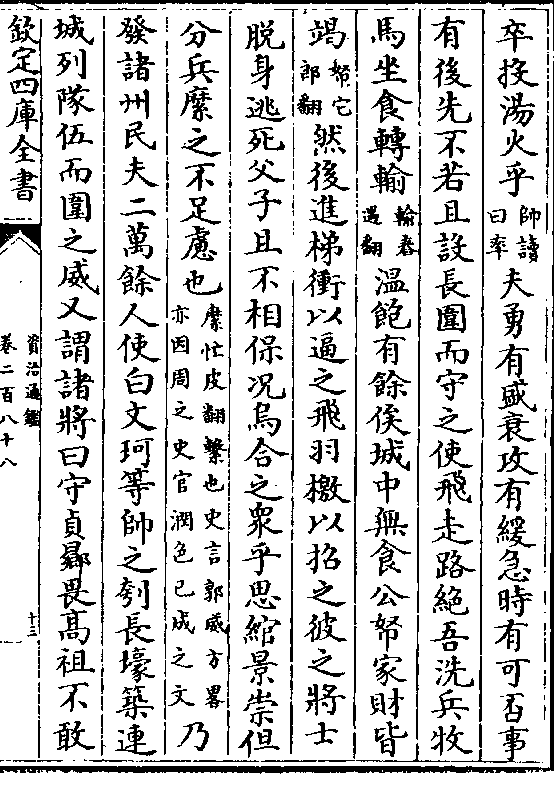 卒投湯火乎帥讀曰率夫勇有盛衰攻有緩急時有可否事
有後先不若且設長圍而守之使飛走路絶吾洗兵牧
馬坐食轉輸輸舂遇翻溫飽有餘俟城中無食公帑家財皆
竭帑它郎翻然後進梯衝以逼之飛羽檄以招之彼之將士
脱身逃死父子且不相保况烏合之衆乎思綰景崇但
分兵縻之不足慮也縻忙皮翻繫也史言郭威方畧亦因周之史官潤色已成之文乃
發諸州民夫二萬餘人使白文珂等帥之刳長壕築連
城列隊伍而圍之威又謂諸將曰守貞曏畏高祖不敢
欽定四庫全書
資治通鑑
卷二百八十八
十三